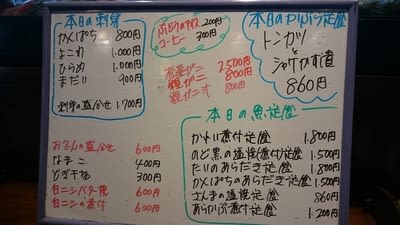 本日の刺身
かんぱち 800円
よこわ 1.000円
ひらめ 1.000円
まだい 900円
刺身の盛合せ 1.700円
ぶどうのアイス 200円
コーヒー 300円
2.500円
親ガニ 800円
親ガニす 800円
本日の
定食
トンカツ
と
860円
おでんの盛合せ 600円
なまこ 400円
300円
白ニシバター焼 600円
白ニシの煮付 600円
本日の魚定食
かれい煮付定食 1.800円
のど黒の塩焼(煮付)定食 1.500円
たいのあらだき定食 1.800円
かんぱちのあらだき定食 1.500円
さんまの塩焼定食 860円
あらかぶ煮付定食 1.200円